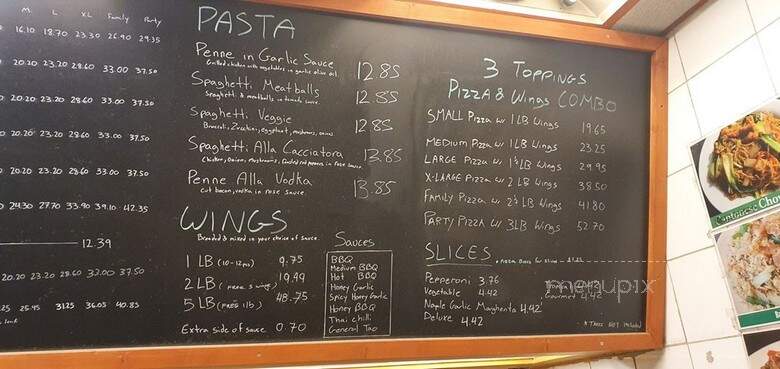 M. L XL Family Party
16.10 18.70 23.30 26.90 29.35
20.20 23.20 28.60 33.00 37.50
20.20 23.20 28.60 33.00 37.50
20.20 23.20 28.60 33.00 37.50
20.20 23.20 28.60 33.00 37.50
24.30 27.70 33.90 39.10 42.35
12.39
20.20 23.20 28.60 33.00 37.50
25.45 31.25 36.05 40.85
PASTA
Penne in Garlic Sauce 12.85
Grilled chicken with vegetables in garlic olive oil.
Spaghetti Meatballs 12.85
Spaghetti & meatballs in tomato sauce.
Spaghetti Veggie 12.85
Broccoli, Zucchini, eggplant, mushrooms, onions
Spaghetti Alla Cacciatora 13.85
Chicken, Onions, Mushrooms, Roasted red peppers in rose sauce
Penne Alla Vodka 13.85
Cut bacon, vodka in rose sauce.
WINGS
Breaded & mixed in your choice of sauce.
1 LB (10-12pcs) 9.75
2 LB (free 5 wings) 19.49
5 LB (free 1 lb) 48.75
Extra side of sauce 0.70
Sauces
BBQ
Medium BBQ
Hot BBQ
Honey Garlic
Spicy Honey Garlic
Honey BBQ
Thai chilli
General Tao
3 TOPPINGS
PIZZA & Wings COMBO
SMALL Pizza w/ 1 LB Wings 19.65
MEDIUM Pizza w/ 1 LB Wings 23.25
LARGE Pizza w/ 1½ LB Wings 29.95
X-LARGE Pizza w/ 2 LB Wings 38.50
FAMILY Pizza w/ 2½ LB Wings 41.80
PARTY Pizza w/ 3LB Wings 52.70
SLICES
Pepperoni 3.76
Vegetable 4.42
Gourmet 4.42
Naple Garlic Margherita 4.42
Deluxe 4.42
* Taxes Not Included
menupix
Cantonese Chow